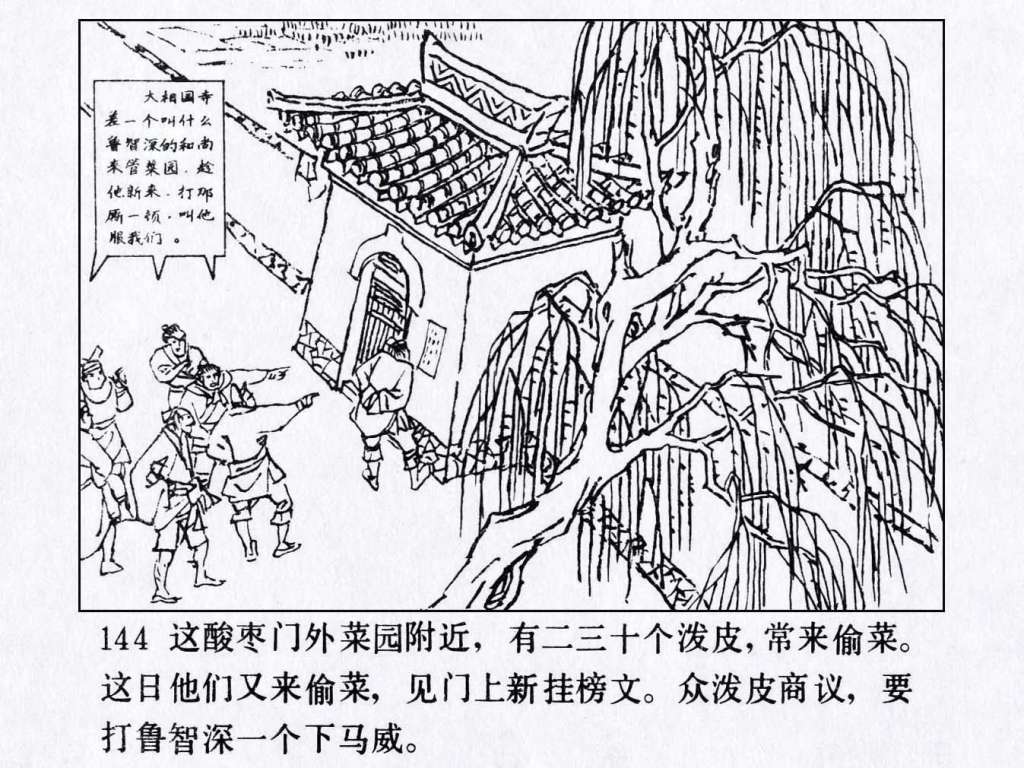 大相国寺
差一个叫什么
鲁智深的和尚
来管菜园．趁
他新来．打那
厮一顿．叫他
服我们。
144 这酸枣门外菜园附近，有二三十个泼皮，常来偷菜。
这日他们又来偷菜，见门上新挂榜文。众泼皮商议，要
打鲁智深一个下马威。